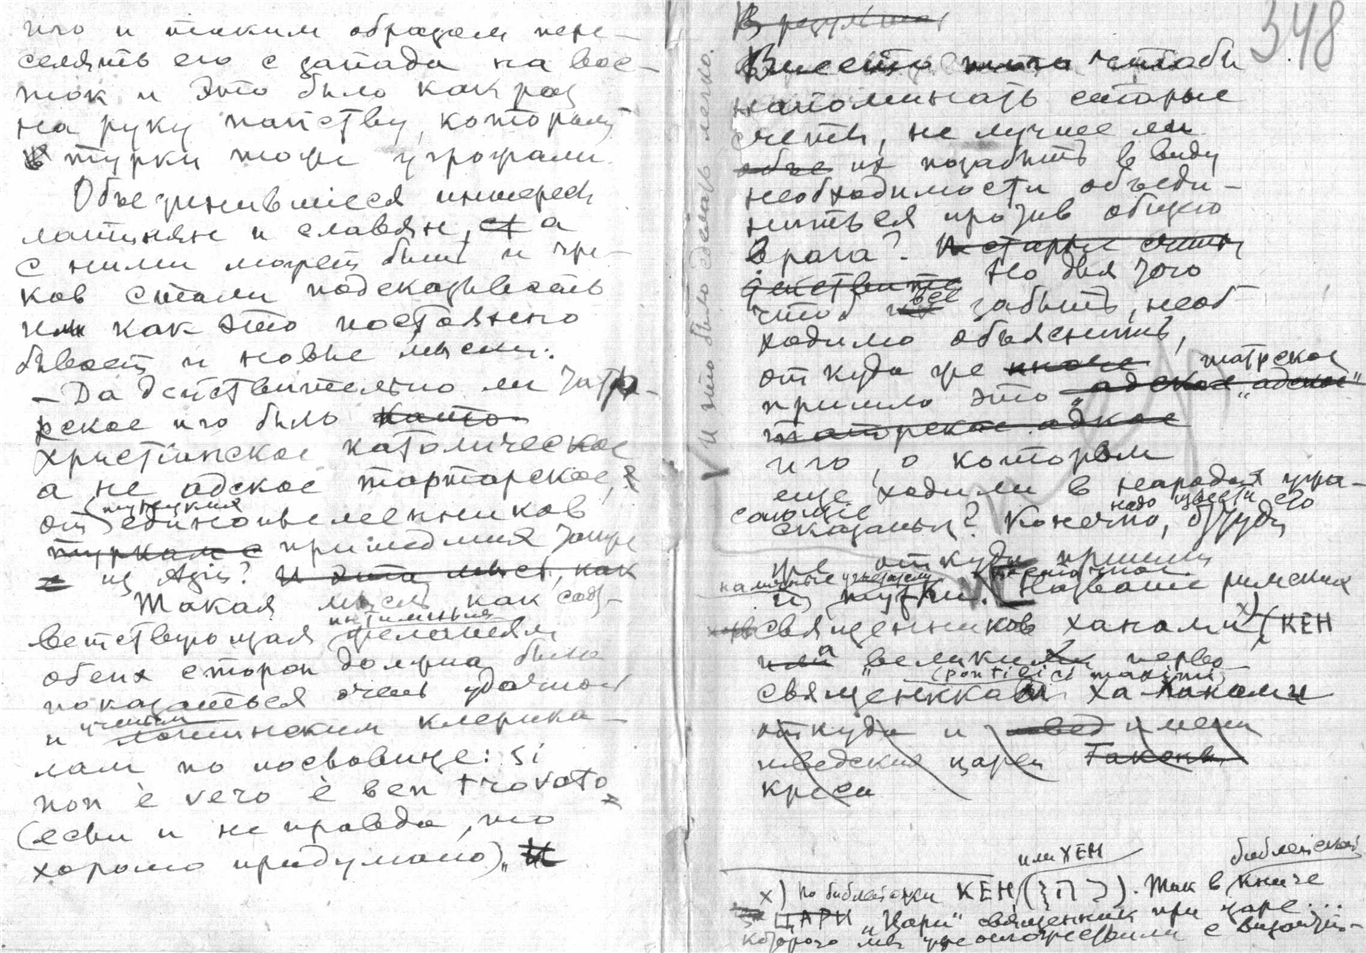 иго и таким образом пере-
селять его с запада на вос-
ток и Это было как раз
на руку папству, которому
турки тоже угрожали.
Объединившиеся интересы
латинян и славян, а
с ними может быть и гре-
ков стали подсказывать
им как это постоянно
бывает и новые мысли:
— Да действительно ли татар-
ское иго было
христианское католическое
а не адское тартарское,
от турецких единоплеменников
пришедших
из Азии? И эта мысль, как
Такая мысль как соот-
ветствующая интимным желаниям
обеих сторон должна была
показаться очень удачной
и ученым латинским клерика-
лам по пословице: si
non è vero è ben trovato
(если и не правда, то
хорошо придумано)"
V и это было сделать легко.
348
В результате
Вместо того чтобы
напоминать старые
счеты, не лучше ли
их позабыть в виду
необходимости объеди-
ниться против общего
врага? И старые счеты
Но для того
чтоб все забыть, необ-
ходимо объяснить,
откуда же татрское
пришло это адское "адское"
татарское адское
иго, о котором
еще ходили в народах ужа-
сающие
сказания? Конечно, надо увести его
откуда
из Название римских
священников ханами x) (КЕН
а великих перво-
(pontifici maximi)
священников ха-ханами
откуда и имени
шведских царей
креса
или ХЕН
x) по библейски КЕН ( ). Так в библейской книге
ЦАРИ "Цари" священник при царе...
которого мы уже отожествили с византий-